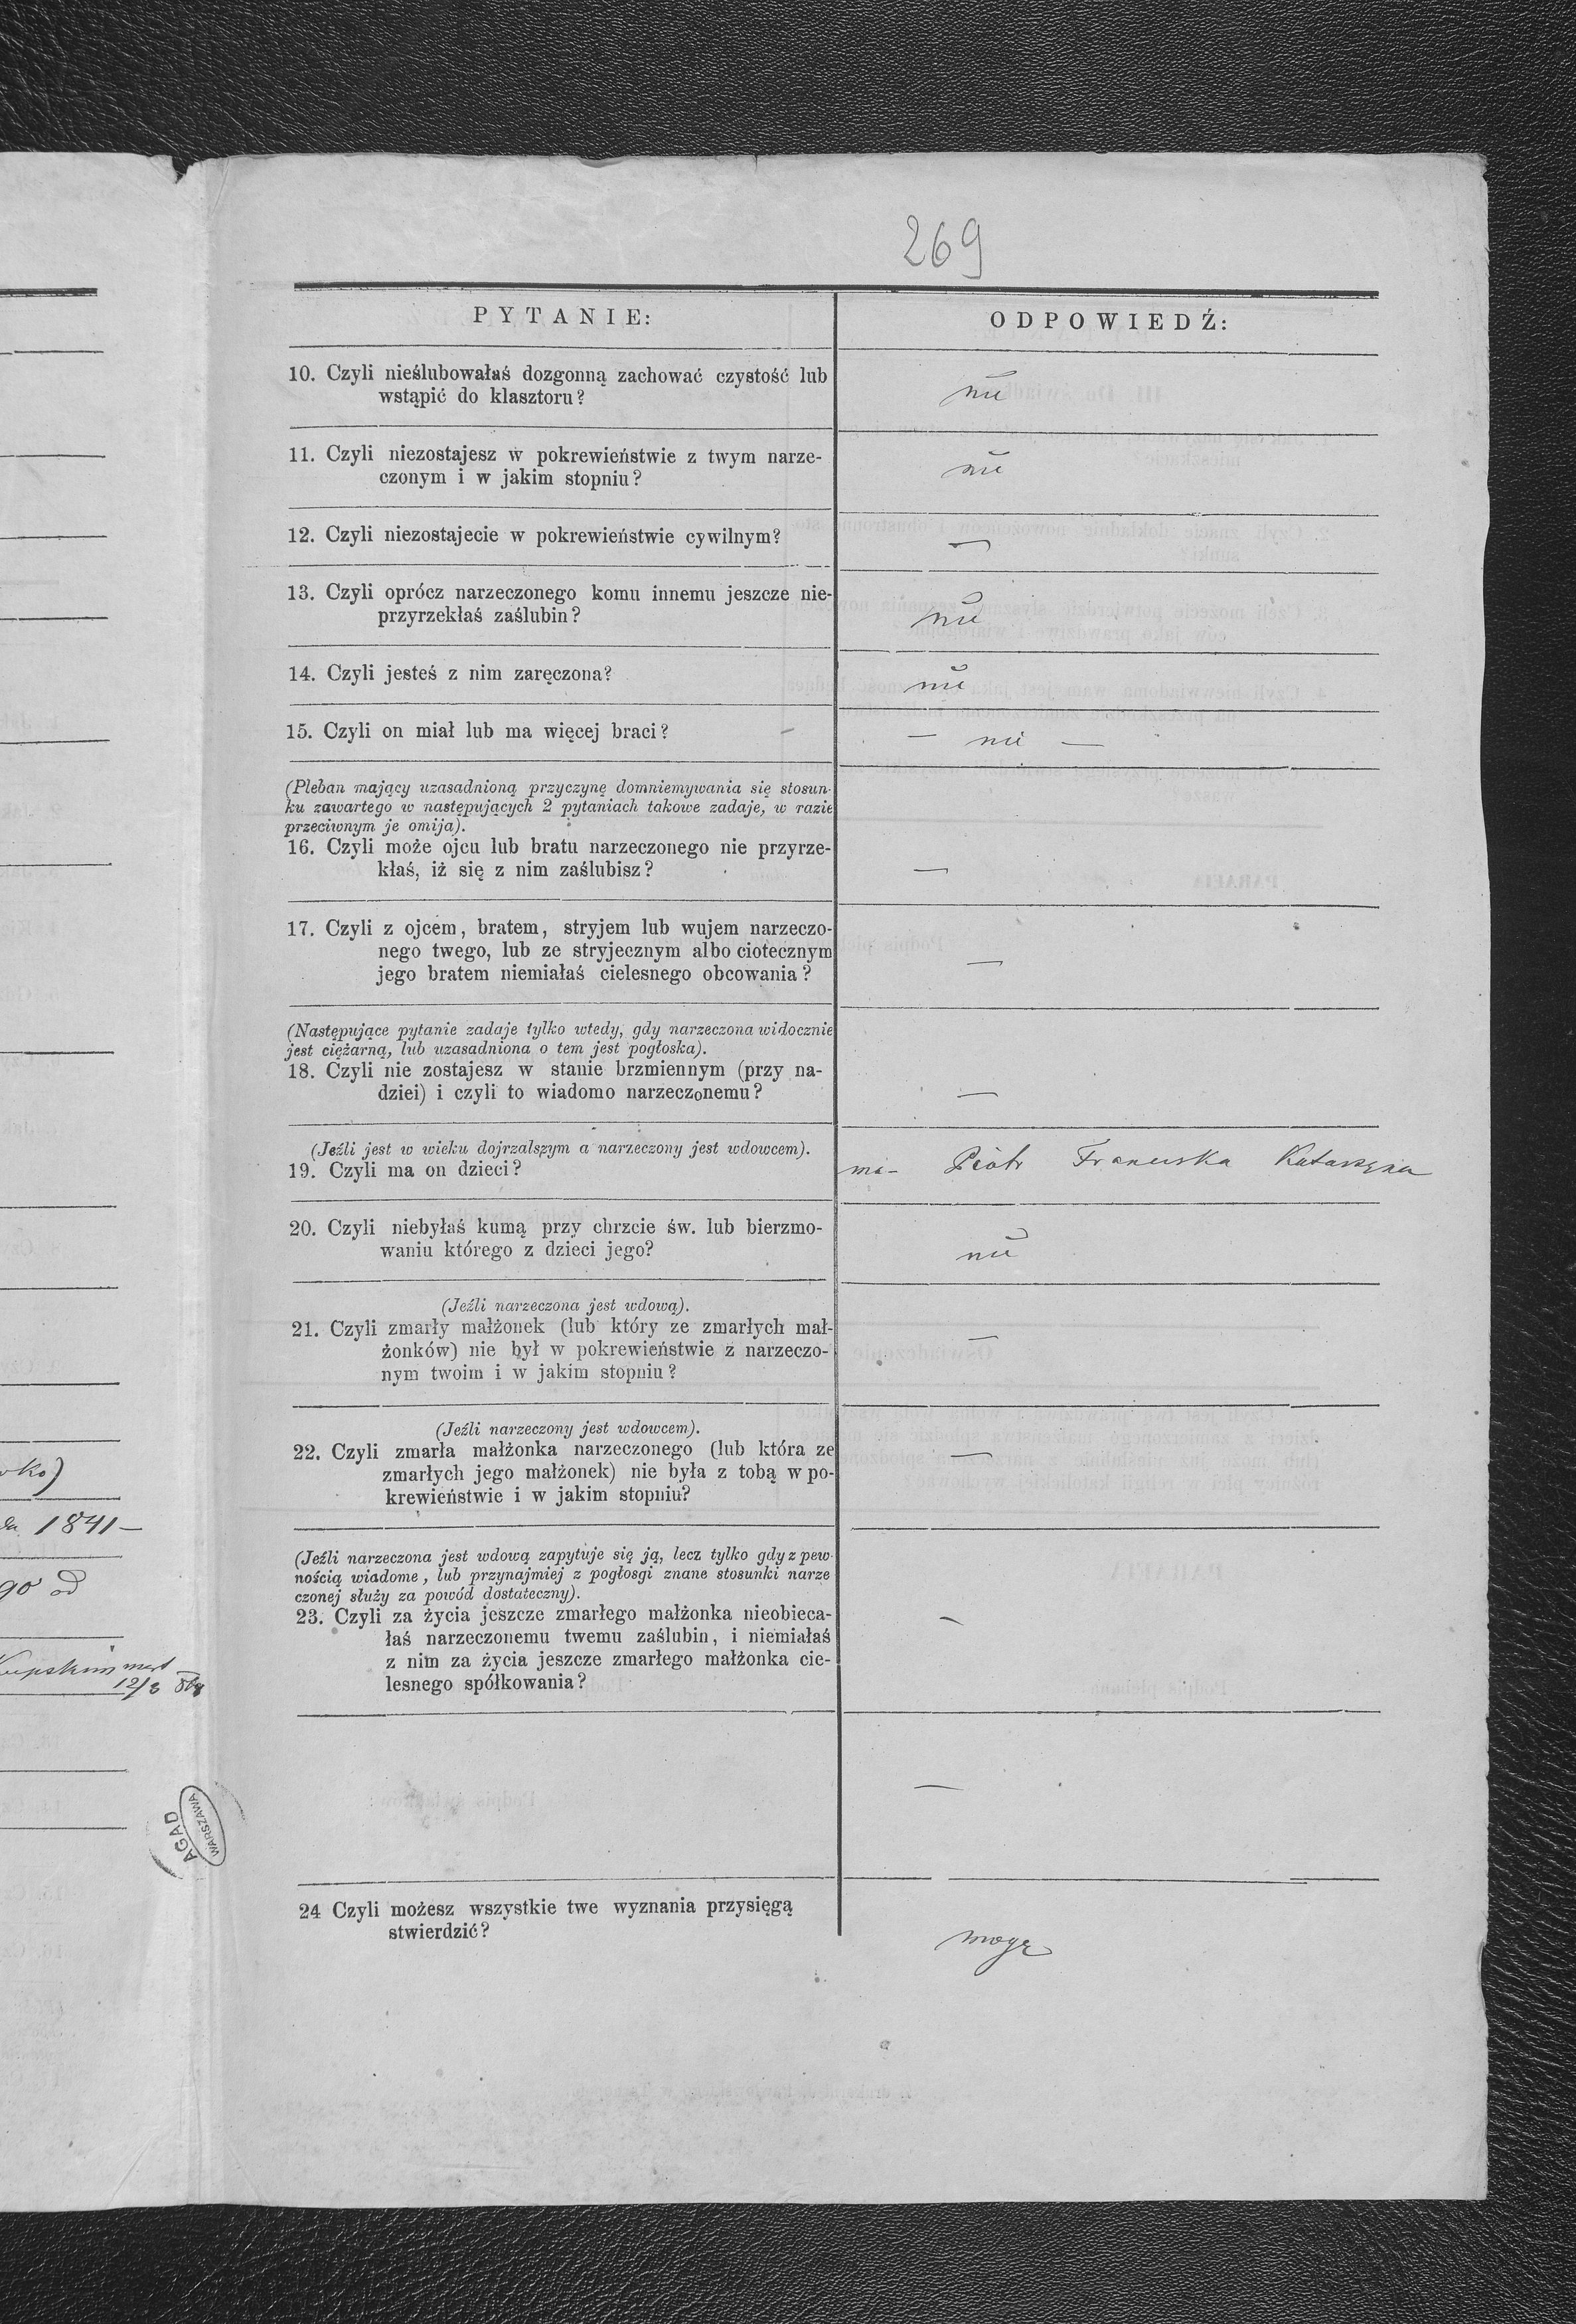 269
PYTANIE:
ODPOWIEDŹ:
10. Czyli nieślubowałaś dozgonną zachować czystość lub
wstąpić do klasztoru?
nie
11. Czyli niezostajesz w pokrewieństwie z twym narze-
czonym i w jakim stopniu?
nie
12. Czyli niezostajecie w pokrewieństwie cywilnym?
—
13. Czyli oprócz narzeczonego komu innemu jeszcze nie-
przyrzekłaś zaślubin?
nie
14. Czyli jesteś z nim zaręczona?
nie
15. Czyli on miał lub ma więcej braci?
— nie —
(Pleban mający uzasadnioną przyczynę domniemywania się stosun-
ku zawartego w następujących 2 pytaniach takowe zadaje, w razie
przeciwnym je omija).
16. Czyli może ojcu lub bratu narzeczonego nie przyrze-
kłaś, iż się z nim zaślubisz?
—
17. Czyli z ojcem, bratem, stryjem lub wujem narzeczo-
nego twego, lub ze stryjecznym albo ciotecznym
jego bratem niemiałaś cielesnego obcowania?
—
(Następujące pytanie zadaje tylko wtedy, gdy narzeczona widocznie
jest ciężarną, lub uzasadniona o tem jest pogłoska).
18. Czyli nie zostajesz w stanie brzmiennym (przy na-
dziei) i czyli to wiadomo narzeczonemu?
—
(Jeźli jest w wieku dojrzalszym a narzeczony jest wdowcem).
19. Czyli ma on dzieci?
ma- Piotr Franciszka Katarzyna
20. Czyli niebyłaś kumą przy chrzcie św. lub bierzmo-
waniu którego z dzieci jego?
nie
(Jeźli narzeczona jest wdową).
21. Czyli zmarły małżonek (lub który ze zmarłych mał-
żonków) nie był w pokrewieństwie z narzeczo-
nym twoim i w jakim stopniu?
—
(Jeźli narzeczony jest wdowcem).
22. Czyli zmarła małżonka narzeczonego (lub która ze
zmarłych jego małżonek) nie była z tobą w po-
krewieństwie i w jakim stopniu?
—
(Jeźli narzeczona jest wdową zapytuje się ją, lecz tylko gdy z pew-
nością wiadome, lub przynajmiej z pogłosgi znane stosunki narze
czonej służy za powód dostateczny).
23. Czyli za życia jeszcze zmarłego małżonka nieobieca-
łaś narzeczonemu twemu zaślubin, i niemiałaś
z nim za życia jeszcze zmarłego małżonka cie-
lesnego spółkowania?
—
—
24 Czyli możesz wszystkie twe wyznania przysięgą
stwierdzić?
mogę
1841 —
od
12/3
AGAD
WARSZAWA